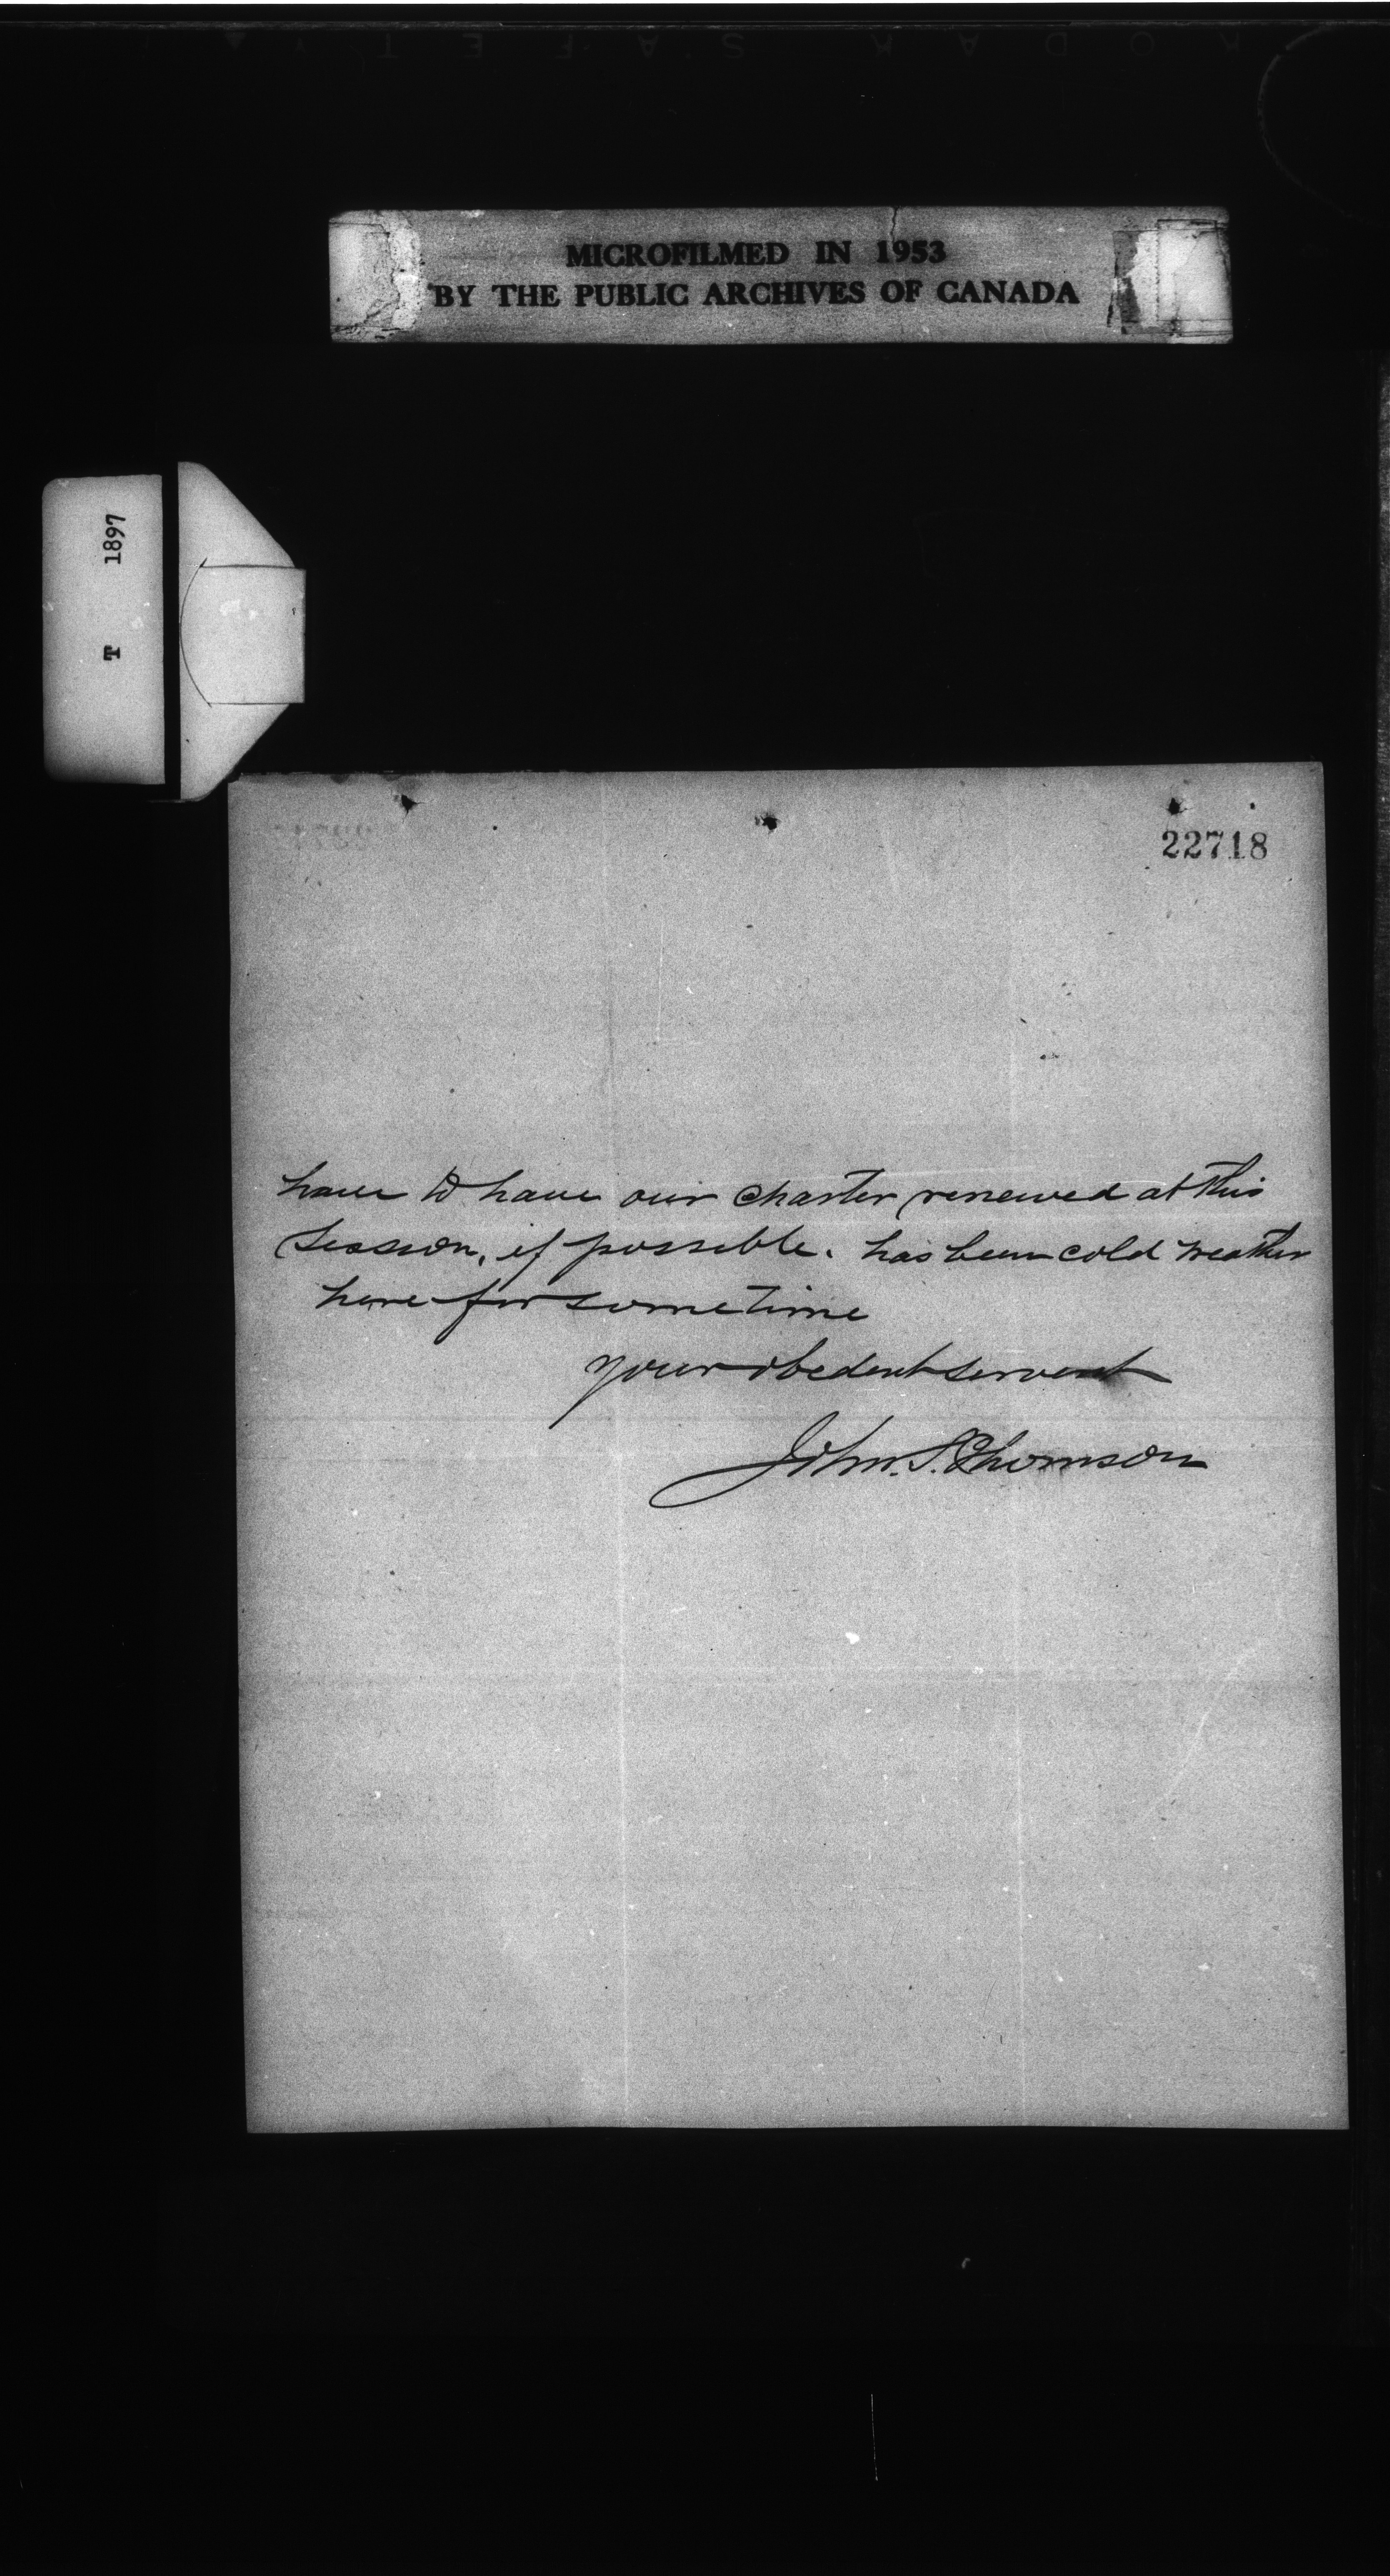 MICROFILMED IN 1953
BY THE PUBLIC ARCHIVES OF CANADA
T 1897
22718
have to have our charter renewed at this
Session, if possible. has been cold weather
here for sometime
your obedent servent
John. S. Thomson